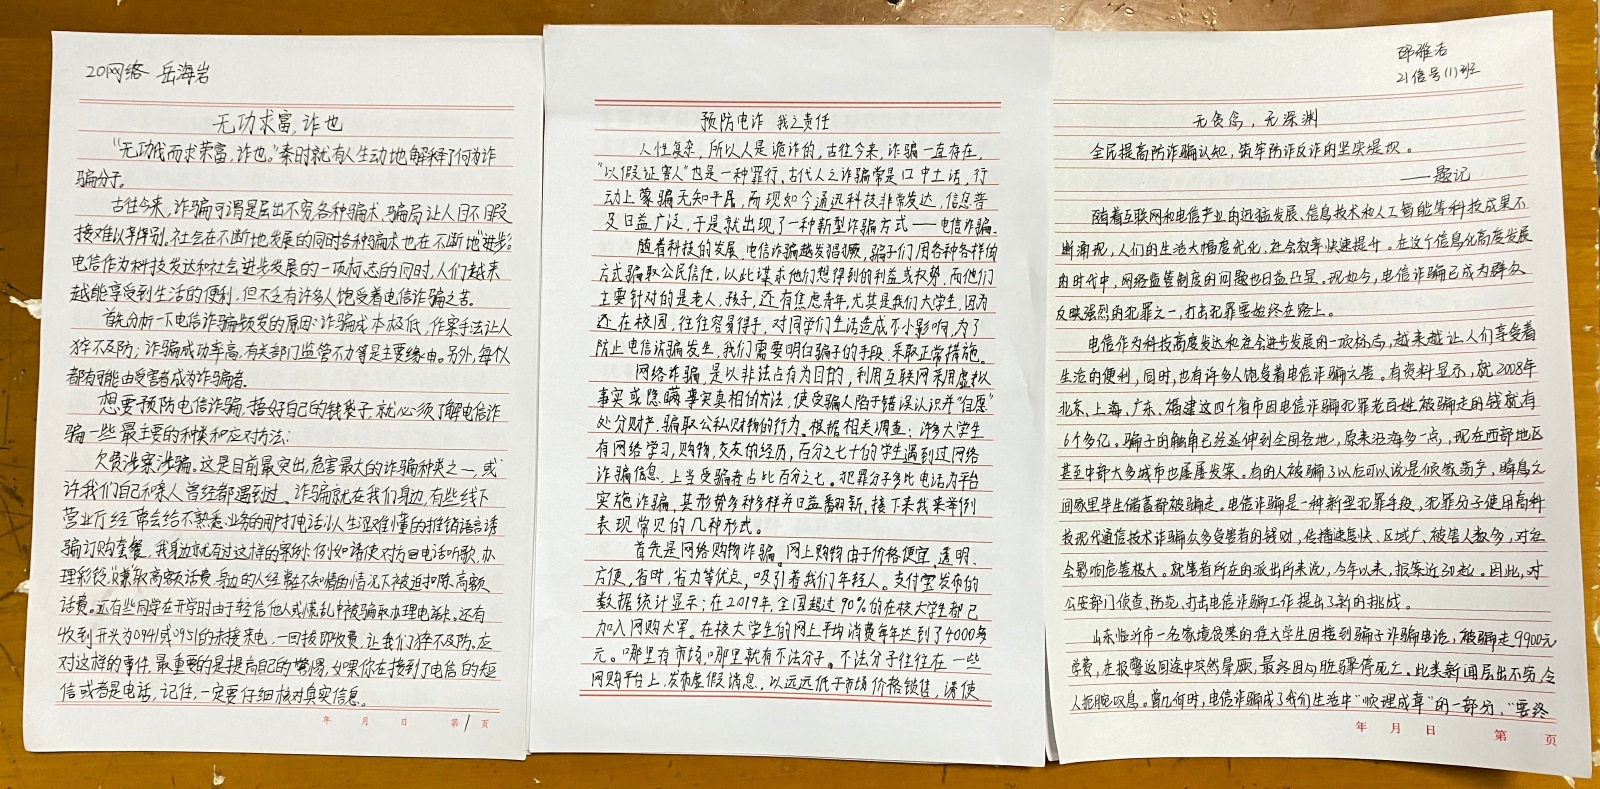 20网络 岳海岩
无功求富,诈也
“无功伐而求荣富,诈也。”秦时就有人生动地解释了何为诈
骗分子。
古往今来,诈骗可谓是层出不穷各种骗术、骗局让人目不暇
接难以辨别。社会在不断地发展的同时各种骗术也在不断地“进步”。
电信作为科技发达和社会进步发展的一项标志的同时,人们越来
越能享受到生活的便利,但不乏有许多人饱受着电信诈骗之苦。
首先分析一下电信诈骗频发的原因:诈骗成本极低,作案手法让人
猝不及防;诈骗成功率高,有关部门监管不力等是主要缘由。另外,每个人
都有可能由受害者成为诈骗者。
想要预防电信诈骗,捂好自己的钱袋子,就必须了解电信诈
骗一些最主要的种类和应对方法:
欠费涉案涉骗。这是目前最突出,危害最大的诈骗种类之一,或
许我们自己和亲人曾经都遇到过。诈骗就在我们身边,有些线下
营业厅经常会给不熟悉业务的用户打电话以人生涩难懂的推销语言诱
骗订购套餐,我身边就有过这样的案例:例如请使对方回电话听歌,办
理彩铃,“赚”取高额话费。身边的人经常不知情的情况下被迫扣除高额
话费。还有些同学在开学时由于轻信他人或慌乱中被骗取办理电话卡。还有
收到开头为0941或0951的未接来电,一回拨即收费,让我们猝不及防。应
对这样的事件,最重要的是提高自己的警惕,如果你在接到了电信的短
信或者是电话,记住,一定要仔细核对真实信息。
年 月 日 第1页
预防电诈 我之责任
人性复杂,所以人是诡诈的,古往今来,诈骗一直存在,
“以假证害人”也是一种罪行,古代人之诈骗常是口中土话,行
动上蒙骗无知平民,而现如今通迅科技非常发达,信息普
及日益广泛,于是就出现了一种新型诈骗方式——电信诈骗。
随着科技的发展,电信诈骗越发猖獗,骗子们用各种各样的
方式骗取公民信任,以此谋求他们想得到的利益或权势,而他们
主要针对的是老人,孩子,还有焦虑青年,尤其是我们大学生,因为
还在校园,往往容易得手,对同学们生活造成不小影响,为了
防止电信诈骗发生,我们需要明白骗子的手段,采取正常措施。
网络诈骗,是以非法占有为目的,利用互联网采用虚拟
事实或隐瞒事实真相的方法,使受骗人陷于错误认识并“自愿”
处分财产,骗取公私财物的行为。根据相关调查:许多大学生
有网络学习,购物,交友的经历,百分之七十的学生遇到过网络
诈骗信息,上当受骗者占比百分之七。犯罪分子多比电话为平台
实施诈骗,其形势多种多样并日益翻新,接下来我来举例
表现常见的几种形式。
首先是网络购物诈骗。网上购物由于价格便宜、透明、
方便,省时,省力等优点,吸引着我们年轻人。支付宝发布的
数据统计显示:在2019年,全国超过90%的在校大学生都已
加入网购大军。在校大学生的网上平均消费每年达到了4000多
元。哪里有市场,哪里就有不法分子。不法分子往往在一些
网购平台上,发布虚假消息,以远远低于市场价格销售,诱使
邵雅洁
21信号(1)班
无贪念,无深渊
全民提高防诈骗认知,筑牢防诈反诈的坚实堤坝。
——题记
随着互联网和电信产业的迅猛发展、信息技术和人工智能等科技成果不
断涌现,人们的生活大幅度优化,社会效率快速提升。在这个信息化高度发展
的时代中,网络监管制度的问题也日益凸显。现如今,电信诈骗已成为群众
反映强烈的犯罪之一,打击犯罪要始终在路上。
电信作为科技高度发达和社会进步发展的一项标志,越来越让人们享受着
生活的便利,同时,也有许多人饱受着电信诈骗之苦。有资料显示,就2008年
北京、上海、广东、福建这四个省市因电信诈骗犯罪老百姓被骗走的钱就有
6个多亿。骗子的触角已经延伸到全国各地,原来沿海多一点,现在西部地区
甚至中部大多城市也屡屡发案。有的人被骗了以后可以说是倾家荡产,瞬息之
间家里毕生储蓄都被骗走。电信诈骗是一种新型犯罪手段,犯罪分子使用高科
技现代通信技术诈骗众多受害者的钱财,传播速度快、区域广、被害人数多,对社
会影响危害极大。就笔者所在的派出所来说,今年以来,报案近30起。因此,对
公安部门侦查、防范、打击电信诈骗工作提出了新的挑战。
山东临沂市一名家境贫寒的准大学生因接到骗子诈骗电话,被骗走9900元
学费,在报警返回途中突然晕厥,最终因心脏骤停死亡。此类新闻层出不穷,令
人扼腕叹息。曾几何时,电信诈骗成了我们生活中“顺理成章”的一部分,“要终
年 月 日 第 页